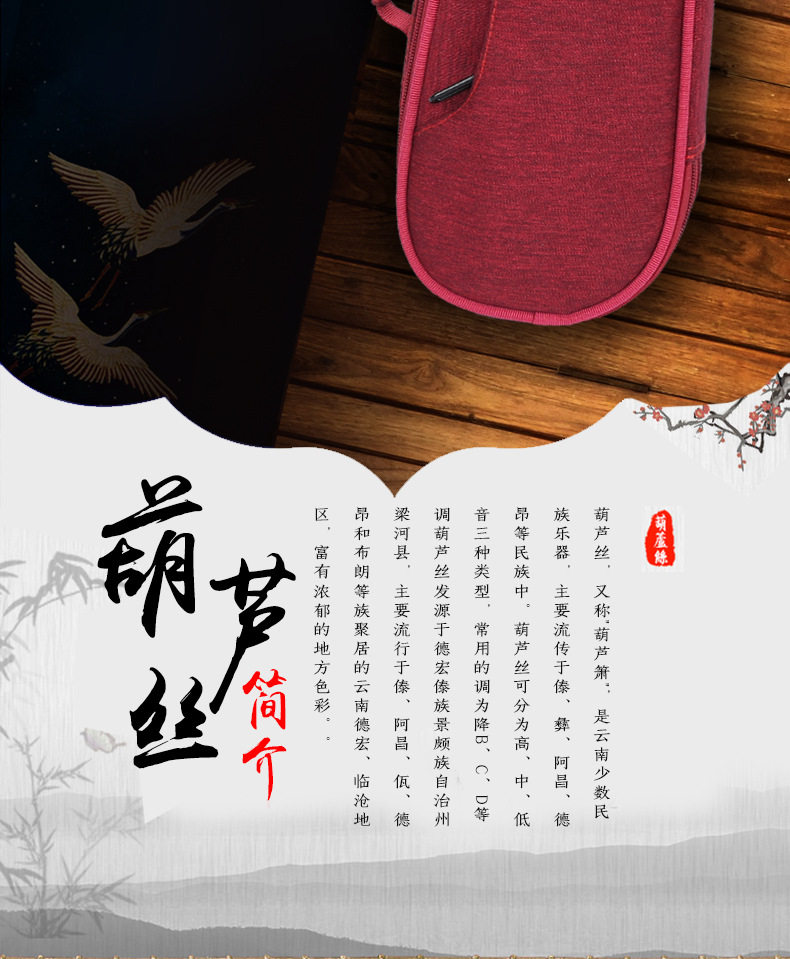 葫蘆絲
葫芦丝，又称“葫芦箫”，是云南少数民
族乐器，主要流传于傣、彝、阿昌、德
昂等民族中。葫芦丝可分为高、中、低
音三种类型，常用的调为降B、C、D等
调葫芦丝发源于德宏傣族景颇族自治州
梁河县，主要流行于傣、阿昌、佤、德
昂和布朗等族聚居的云南德宏、临沧地
区，富有浓郁的地方色彩。。
葫芦丝
简介